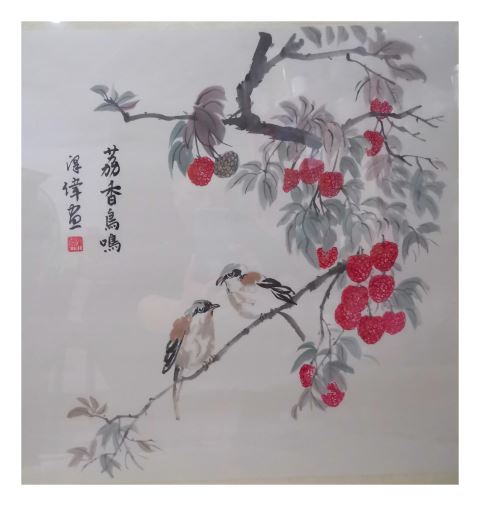 荔香鳥鳴
澤偉畫